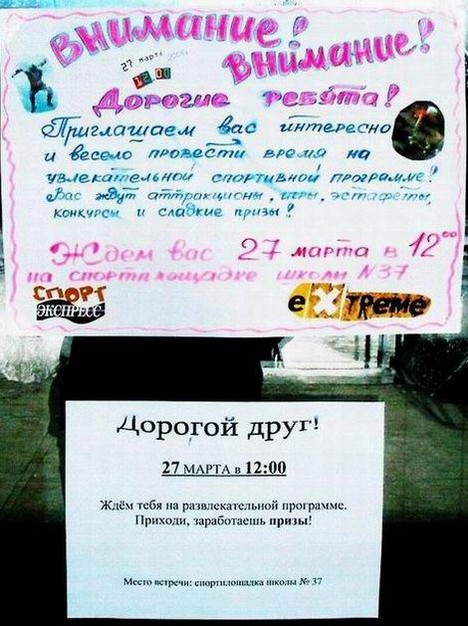 Внимание!
Внимание!
27 марта
12 00
Дорогие ребята!
Приглашаем вас интересно
и весело провести время на
увлекательной спортивной программе!
Вас ждут аттракционы, игры, эстафеты,
конкурсы и сладкие призы!
Ждем вас 27 марта в 12⁰⁰
на спортплощадке школы N37
СПОРТ
ЭКСПРЕСС
eXTREME
Дорогой друг!
27 МАРТА в 12:00
Ждём тебя на развлекательной программе.
Приходи, заработаешь призы!
Место встречи: спортплощадка школы № 37